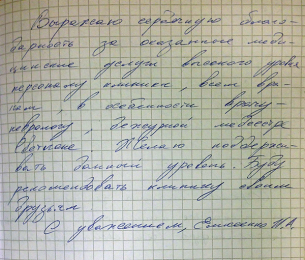 Выражаю сердечную благо-
дарность за оказанные меди-
цинские услуги высокого уровня
персоналу клиники, всем вра-
чам, в особенности врачу-
неврологу, дежурной медсестре
Светлане. Желаю поддержи-
вать данный уровень. Буду
рекомендовать клинику своим
друзьям.
С уважением,